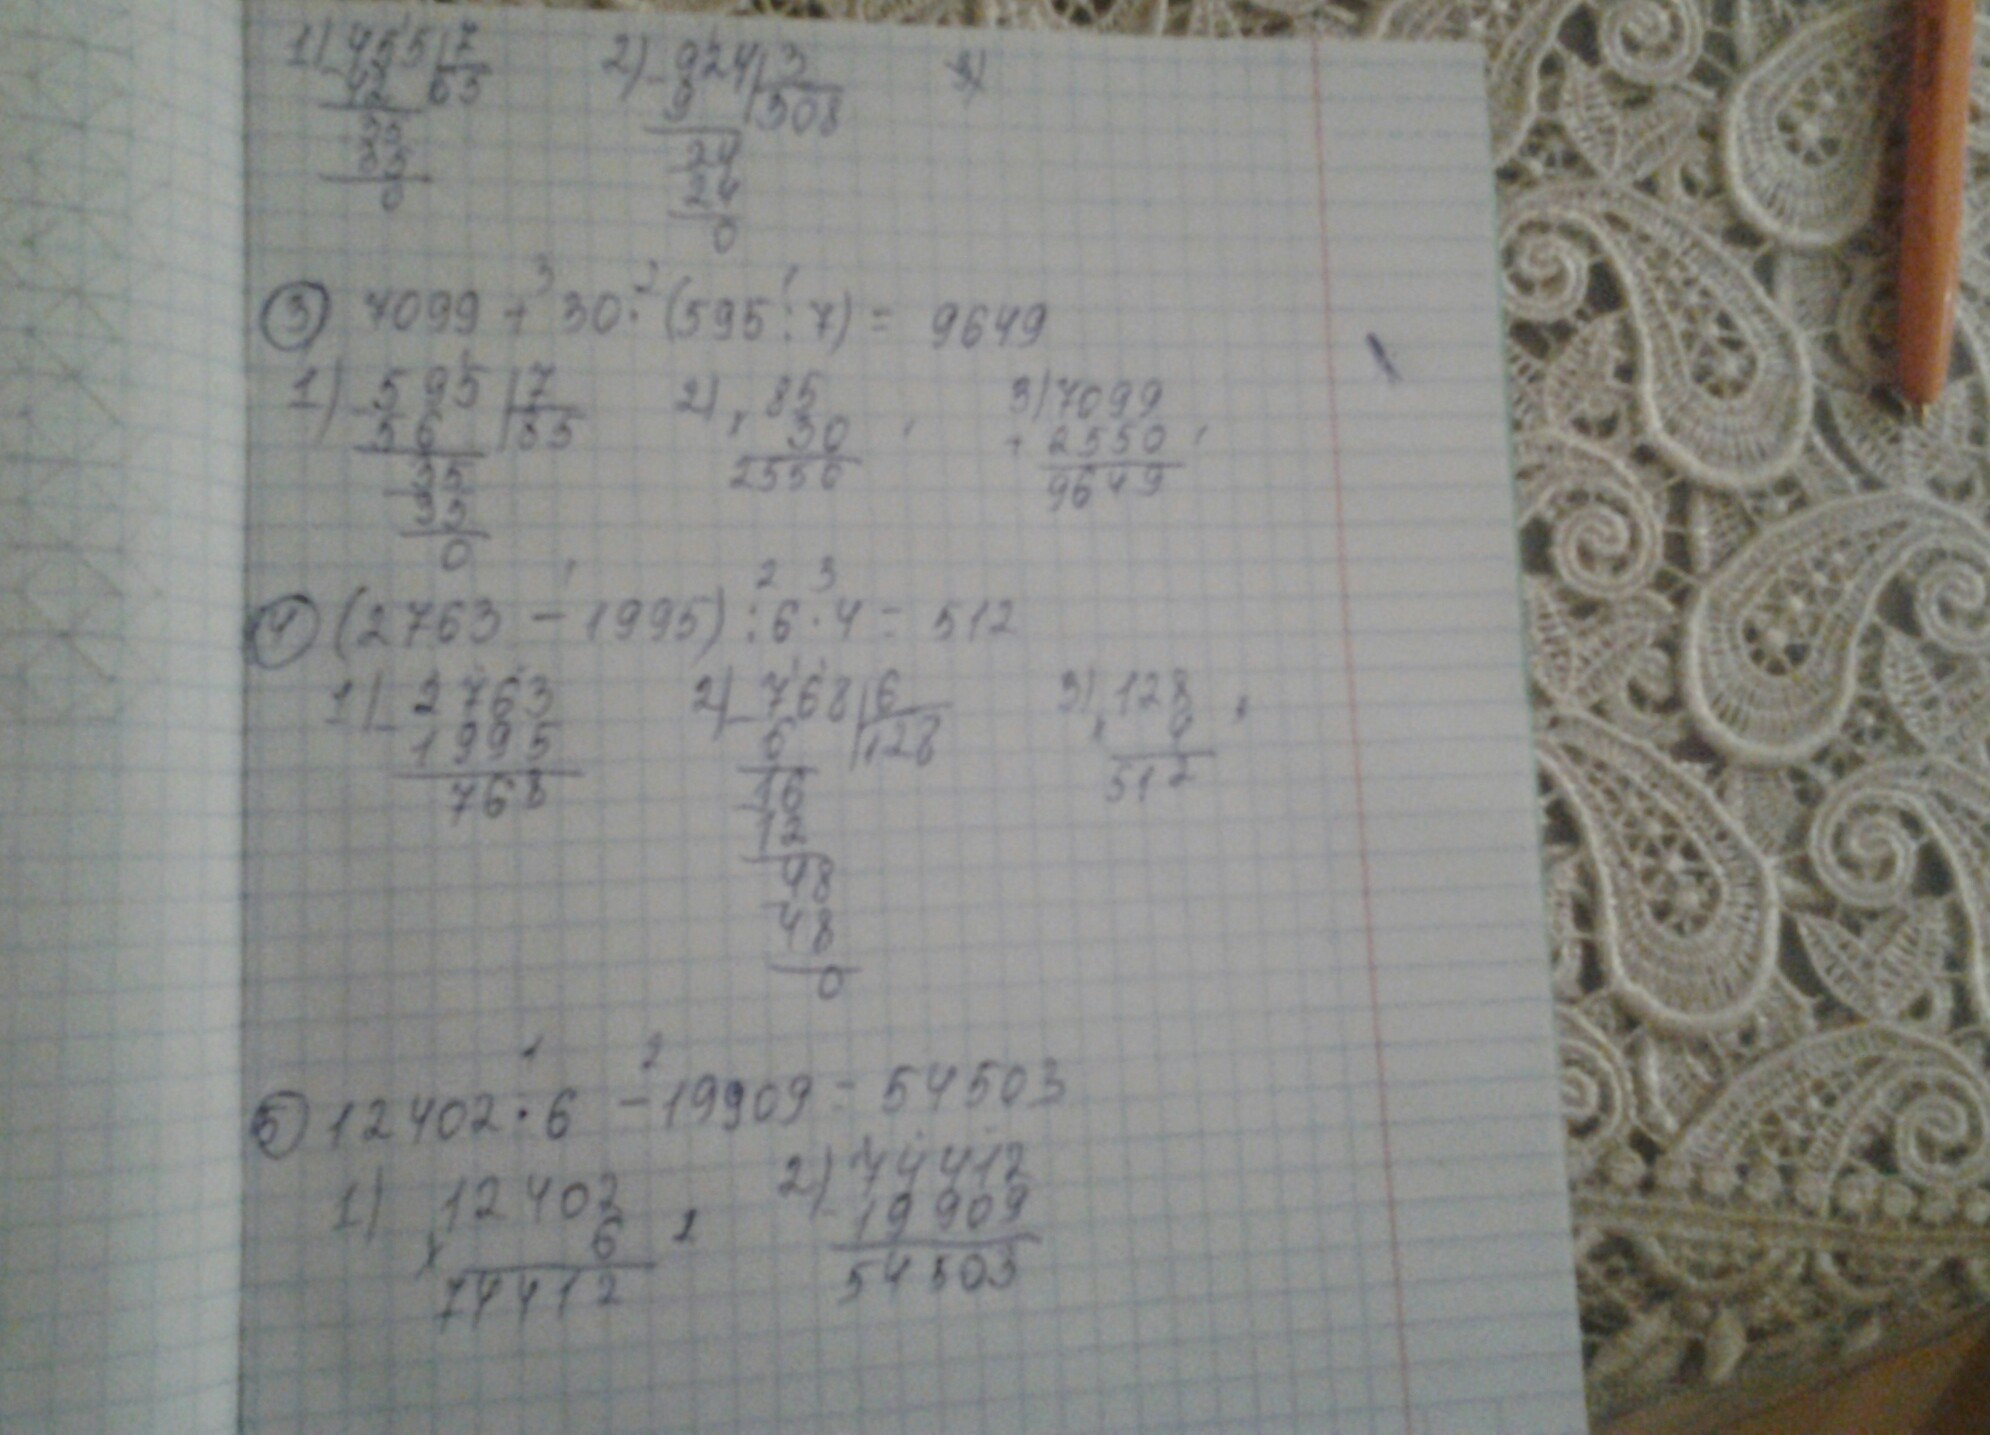 1) 455 7    2) 924 3    3)
42 65    9 308
35    24
35    24
0    0
3 2 1
③ 7099 + 30 · (595 : 7) = 9649
1) 595 7    2) 85    3) 7099
56 85    × 30    + 2550
35    2550    9649
35
0
1 2 3
④ (2763 - 1995) : 6 · 4 = 512
1) 2763    2) 768 6    3) 128
- 1995    6 128    × 4
768    16    512
12
48
48
0
1 2
⑤ 12402 · 6 - 19909 = 54503
1) 12402    2) 74412
× 6    19909
74412    54503